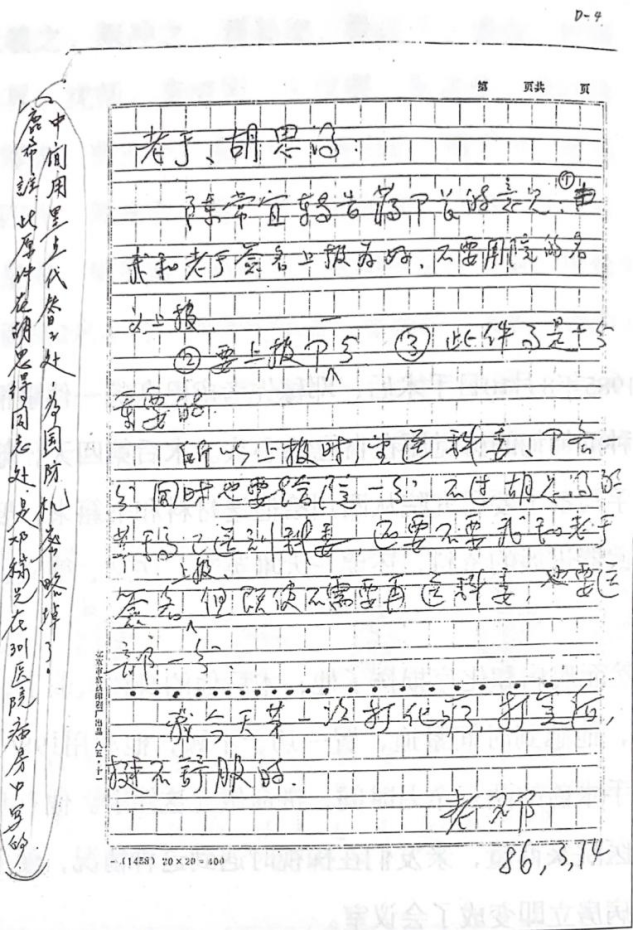 D-4
第 页共 页
老于、胡思得:
陈常宜转告蒋部长的意见:①由
我和老于签名上报为好,不要用院的名
义上报。
②要上报部 ③此件是十分
重要的
所以上报时,呈送科委
同时也要给院一份。不过胡思得的
草稿已送到科委,还要不要我和老于
签名上报。但既使不需要再送科委,也要送
部一份。
我今天第一次打化疗,打完后,
挺不舒服的。
老邓
86,3,14
(1458) 20×20=400
北京市京昌印刷厂出品 八五·十一
中间用黑点代替之处,为国防机密,略掉了。
鹿希注 此原件在胡思得同志处,是邓稼先在301医院病房中写的